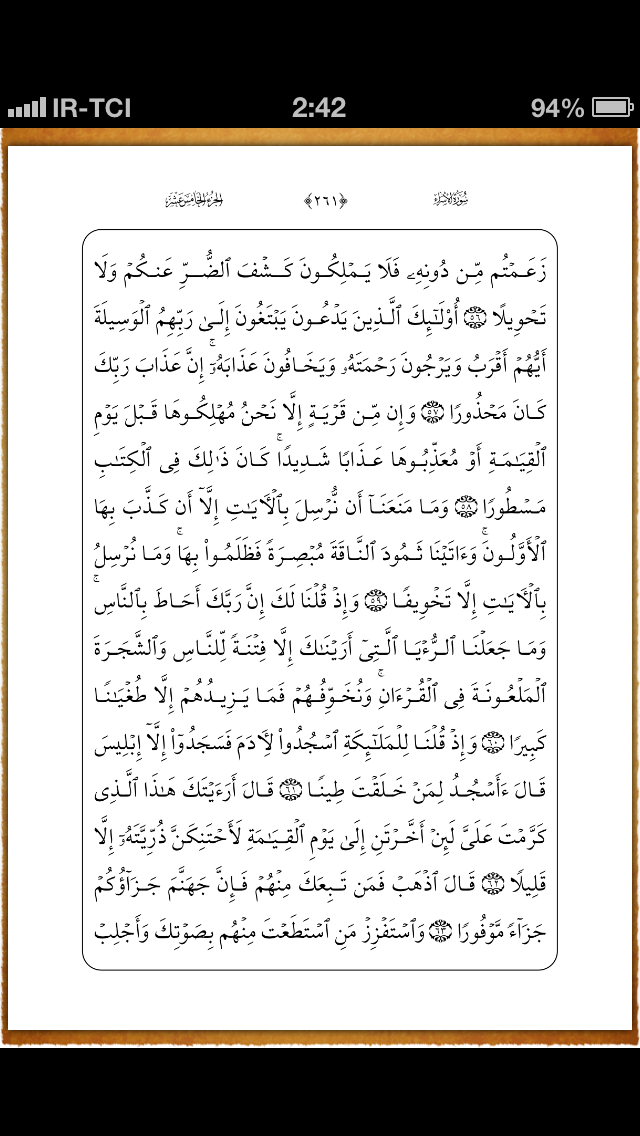 IR-TCI 2:42 94%
سُورَةُ الإِسْرَاءِ ﴿٢٦١﴾ الجُزْءُ الخَامِسَ عَشَرَ
زَعَمْتُم مِّن دُونِهِۦ فَلَا يَمْلِكُونَ كَشْفَ ٱلضُّرِّ عَنكُمْ وَلَا
تَحْوِيلًا ۝٥٦ أُو۟لَٰٓئِكَ ٱلَّذِينَ يَدْعُونَ يَبْتَغُونَ إِلَىٰ رَبِّهِمُ ٱلْوَسِيلَةَ
أَيُّهُمْ أَقْرَبُ وَيَرْجُونَ رَحْمَتَهُۥ وَيَخَافُونَ عَذَابَهُۥٓ ۚ إِنَّ عَذَابَ رَبِّكَ
كَانَ مَحْذُورًا ۝٥٧ وَإِن مِّن قَرْيَةٍ إِلَّا نَحْنُ مُهْلِكُوهَا قَبْلَ يَوْمِ
ٱلْقِيَٰمَةِ أَوْ مُعَذِّبُوهَا عَذَابًا شَدِيدًا ۚ كَانَ ذَٰلِكَ فِى ٱلْكِتَٰبِ
مَسْطُورًا ۝٥٨ وَمَا مَنَعَنَآ أَن نُّرْسِلَ بِٱلْءَايَٰتِ إِلَّآ أَن كَذَّبَ بِهَا
ٱلْأَوَّلُونَ ۚ وَءَاتَيْنَا ثَمُودَ ٱلنَّاقَةَ مُبْصِرَةً فَظَلَمُوا۟ بِهَا ۚ وَمَا نُرْسِلُ
بِٱلْءَايَٰتِ إِلَّا تَخْوِيفًا ۝٥٩ وَإِذْ قُلْنَا لَكَ إِنَّ رَبَّكَ أَحَاطَ بِٱلنَّاسِ ۚ
وَمَا جَعَلْنَا ٱلرُّءْيَا ٱلَّتِىٓ أَرَيْنَٰكَ إِلَّا فِتْنَةً لِّلنَّاسِ وَٱلشَّجَرَةَ
ٱلْمَلْعُونَةَ فِى ٱلْقُرْءَانِ ۚ وَنُخَوِّفُهُمْ فَمَا يَزِيدُهُمْ إِلَّا طُغْيَٰنًا
كَبِيرًا ۝٦٠ وَإِذْ قُلْنَا لِلْمَلَٰٓئِكَةِ ٱسْجُدُوا۟ لِءَادَمَ فَسَجَدُوٓا۟ إِلَّآ إِبْلِيسَ
قَالَ ءَأَسْجُدُ لِمَنْ خَلَقْتَ طِينًا ۝٦١ قَالَ أَرَءَيْتَكَ هَٰذَا ٱلَّذِى
كَرَّمْتَ عَلَىَّ لَئِنْ أَخَّرْتَنِ إِلَىٰ يَوْمِ ٱلْقِيَٰمَةِ لَأَحْتَنِكَنَّ ذُرِّيَّتَهُۥٓ إِلَّا
قَلِيلًا ۝٦٢ قَالَ ٱذْهَبْ فَمَن تَبِعَكَ مِنْهُمْ فَإِنَّ جَهَنَّمَ جَزَآؤُكُمْ
جَزَآءً مَّوْفُورًا ۝٦٣ وَٱسْتَفْزِزْ مَنِ ٱسْتَطَعْتَ مِنْهُم بِصَوْتِكَ وَأَجْلِبْ